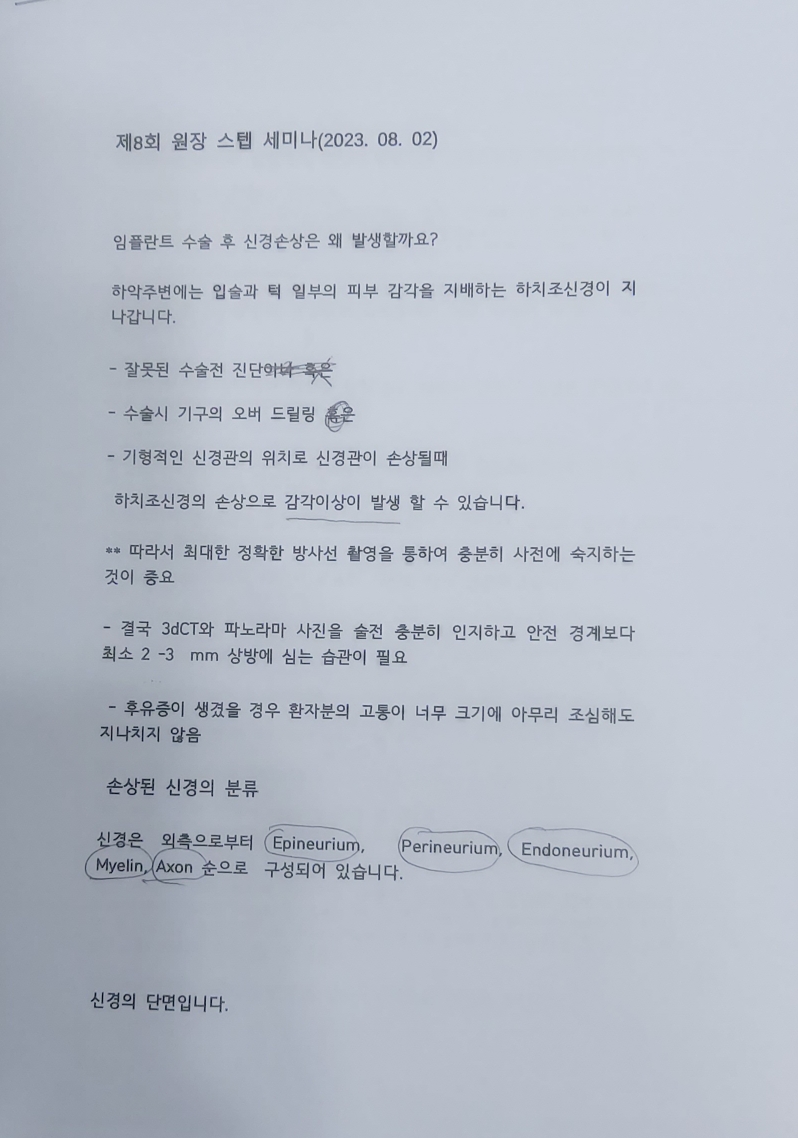 제8회 원장 스텝 세미나(2023. 08. 02)
임플란트 수술 후 신경손상은 왜 발생할까요?
하악주변에는 입술과 턱 일부의 피부 감각을 지배하는 하치조신경이 지
나갑니다.
- 잘못된 수술전 진단이나 혹은
- 수술시 기구의 오버 드릴링 혹은
- 기형적인 신경관의 위치로 신경관이 손상될때
하치조신경의 손상으로 감각이상이 발생 할 수 있습니다.
** 따라서 최대한 정확한 방사선 촬영을 통하여 충분히 사전에 숙지하는
것이 중요
- 결국 3dCT와 파노라마 사진을 술전 충분히 인지하고 안전 경계보다
최소 2 -3 mm 상방에 심는 습관이 필요
- 후유증이 생겼을 경우 환자분의 고통이 너무 크기에 아무리 조심해도
지나치지 않음
손상된 신경의 분류
신경은 외측으로부터 Epineurium, Perineurium, Endoneurium,
Myelin, Axon 순으로 구성되어 있습니다.
신경의 단면입니다.